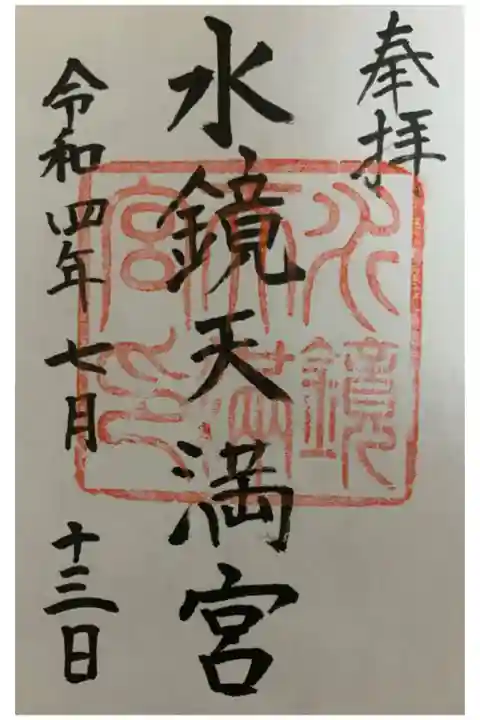 奉拝
水鏡天満宮
令和四年七月十三日
水鏡天満宮印